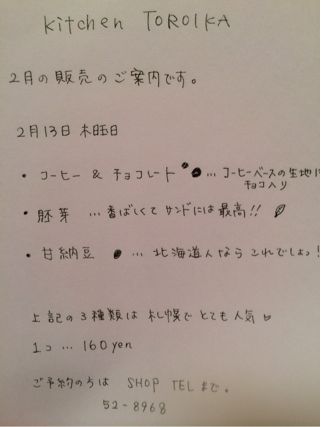 kitchen TOROIKA
2月の販売のご案内です。
2月13日 木曜日
・コーヒー & チョコレート … コーヒーベースの生地に
チョコ入り
・胚芽 … 香ばしくて サンドには最高!!
・甘納豆 … 北海道人なら これでしょ!
上記の3種類は 札幌で とても人気
1コ … 160yen
ご予約の方は SHOP TELまで。
52-8968